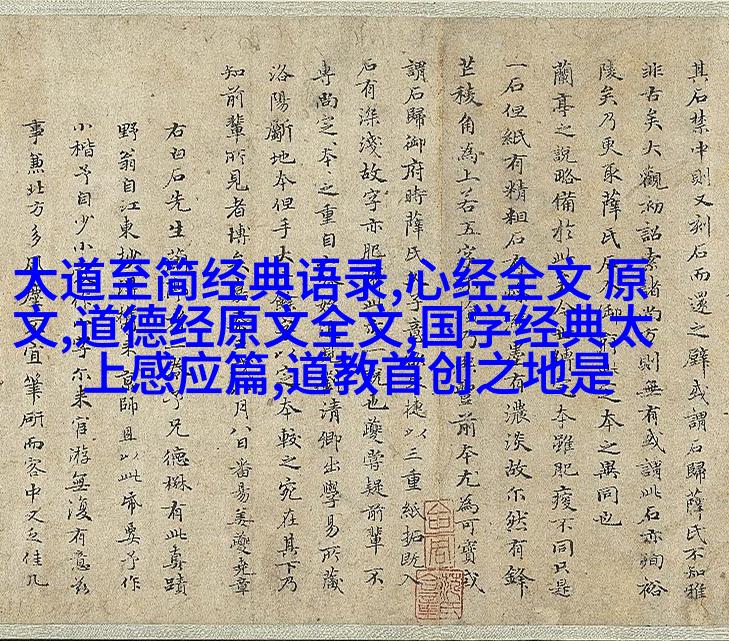 大道至简经典语录,心经全文 原
文,道德经原文全文,国学经典太
上感应篇,道教首创之地是
其石禁中則又刻石而還之壁或謂石歸薛氏不知雅
非古矣大觀初詔索諸尚方則無有或謂此石亦殉裕
陵矣乃更取薛氏石之本之異同也
蘭亭之說略備於此本雖肥瘦不同只是
一石但紙有精粗石有墨有濃淡故尔然有鋒
芒稜角為上若五字前本尤為可寶我
謂石歸御府時薛氏子捷以三重紙拓既入
石有深淺故字亦肥也夔嘗疑前輩不
專尚定本之重自清卿出學易所藏
洛陽斷地本但手大本較之宛在其下乃
知前輩所見者博矣月八日番昜姜夔堯章
右白石先生兄德楙有此真蹟
野翁自江東抄帥且以此紙要予作
小楷予自少小尔来宦游無復有意兹
事兼北方多風宜筆研而客中又乏佳几